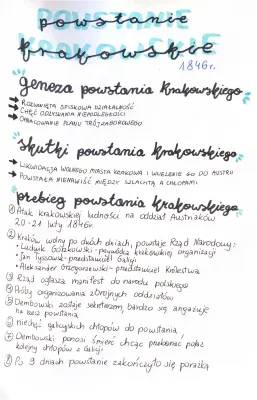 powstanie
krakowskie
1846r.
geneza powstania krakowskiego
ROZWINIĘTA SPISKOWA DZIAŁALNOŚĆ
CHĘĆ ODZYSKANIA NIEPODLEGŁOŚCI
OPRACOWANIE PLANU TRÓJZABOROWEGO
skutki powstania krakowskiego
LIKWIDACJA WOLNEGO MIASTA KRAKOWA I WCIELENIE GO DO AUSTRII
POWSTAŁA NIENAWIŚĆ MIĘDZY SZLACHTĄ A CHŁOPAMI
przebieg powstania krakowskiego
① Atak krakowskiej ludności na oddział Austriaków
20-21 luty 1846r.
② Kraków wolny po dwóch dniach, powstaje Rząd Narodowy:
• Ludwik Gorzkowski - przywódca krakowskiej organizacji
• Jan Tyssowski - przedstawiciel Galicji
• Aleksander Grzegorzewski - przedstawiciel Królestwa
③ Rząd ogłasza manifest do narodu polskiego
④ Próby organizowania zbrojnych oddziałów
⑤ Dembowski zostaje sekretarzem, bardzo się angażuje
na rzecz powstania
⑥ niechęć galicyjskich chłopów do powstania
⑦ Dembowski ponosi śmierć chcąc przekonać
kolejny chłopów z Galicji
⑧ Po 9 dniach powstanie zakończyło się porażką